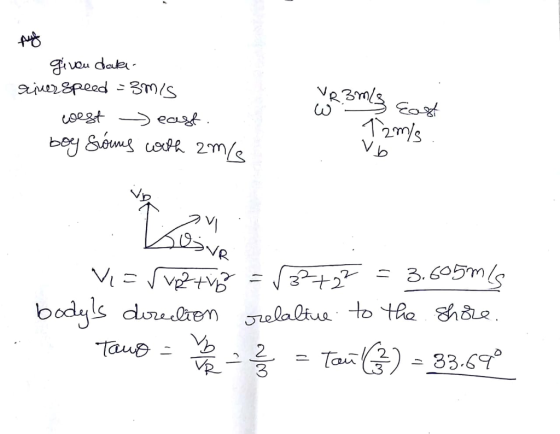 given data.
river speed = 3m/s
west → east.
boy swims with 2m/s
VR 3m/s
W → East
↑ 2m/s
Vb
Vb
V1
θ
VR
V1 = √VR²+Vb² = √3²+2² = 3.605m/s
body's direction relative to the shore.
Tanθ = Vb/VR = 2/3 = Tan⁻¹(2/3) = 33.69°